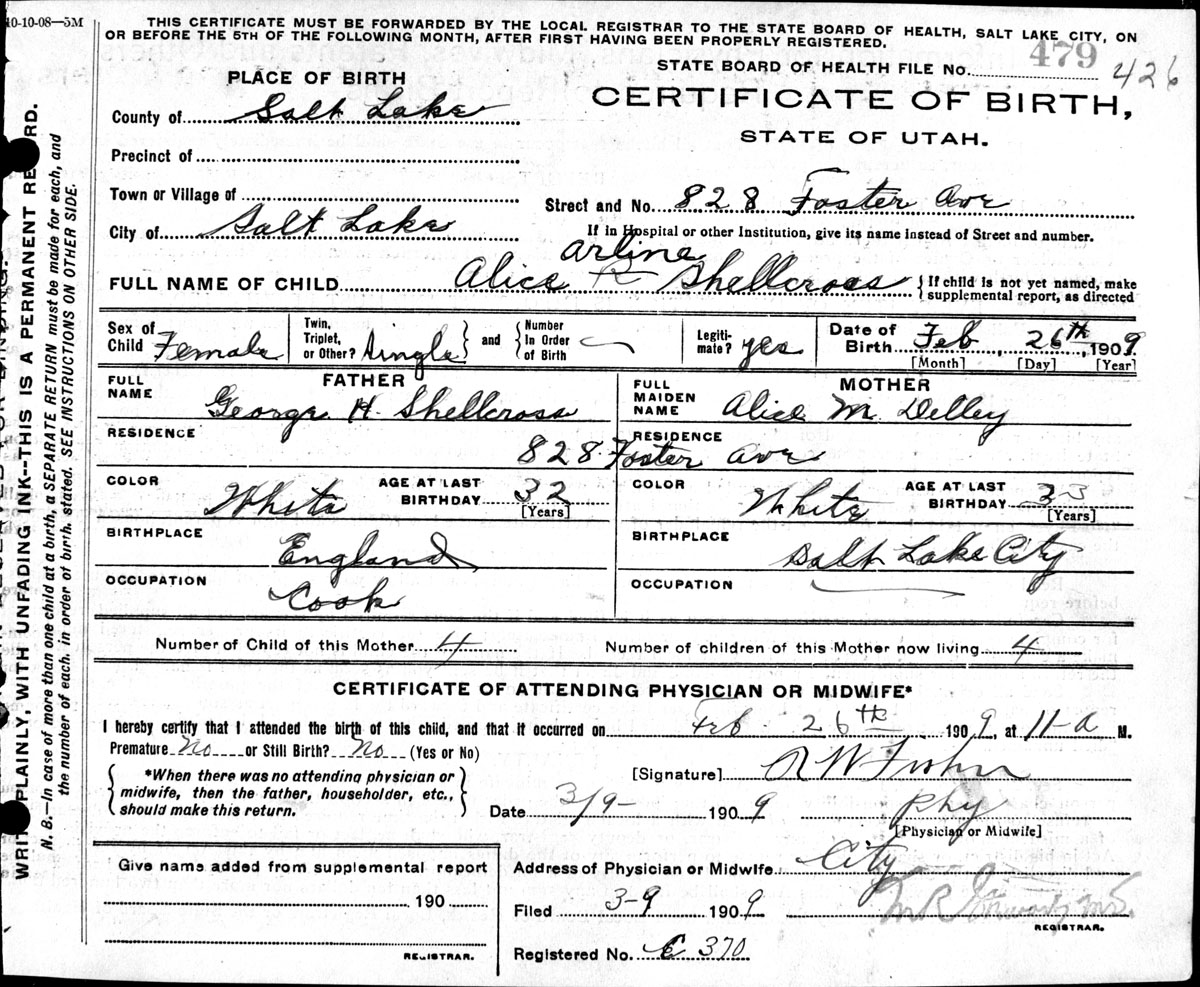 10-10-08—5M
THIS CERTIFICATE MUST BE FORWARDED BY THE LOCAL REGISTRAR TO THE STATE BOARD OF HEALTH, SALT LAKE CITY, ON
OR BEFORE THE 5TH OF THE FOLLOWING MONTH, AFTER FIRST HAVING BEEN PROPERLY REGISTERED.
STATE BOARD OF HEALTH FILE No. 479 426
PLACE OF BIRTH
CERTIFICATE OF BIRTH,
STATE OF UTAH.
County of Salt Lake
Precinct of
Town or Village of
Street and No. 828 Foster Ave
City of Salt Lake
If in Hospital or other Institution, give its name instead of Street and number.
Arline
FULL NAME OF CHILD Alice R Shellcross
If child is not yet named, make
supplemental report, as directed
Sex of Child Female
Twin, Triplet, or Other? Single and Number In Order of Birth
Legiti-mate? yes
Date of Birth Feb 26th, 1909
[Month] [Day] [Year]
FATHER
FULL NAME George H. Shellcross
MOTHER
FULL MAIDEN NAME Alice M. Delley
RESIDENCE
RESIDENCE
828 Foster Ave
COLOR White AGE AT LAST BIRTHDAY 32 [Years]
COLOR White AGE AT LAST BIRTHDAY 33 [Years]
BIRTHPLACE England
BIRTHPLACE Salt Lake City
OCCUPATION Cook
OCCUPATION
Number of Child of this Mother 4 Number of children of this Mother now living 4
CERTIFICATE OF ATTENDING PHYSICIAN OR MIDWIFE*
I hereby certify that I attended the birth of this child, and that it occurred on Feb 26th 1909, at 11-a M.
Premature No or Still Birth? No (Yes or No)
*When there was no attending physician or
midwife, then the father, householder, etc.,
should make this return.
[Signature] R W
Date 3/9- 1909 Phy
[Physician or Midwife]
Give name added from supplemental report
190
REGISTRAR.
Address of Physician or Midwife City
Filed 3-9 1909
REGISTRAR.
Registered No. C 370
WRITE PLAINLY, WITH UNFADING INK--THIS IS A PERMANENT RECORD.
N. B.—In case of more than one child at a birth, a SEPARATE RETURN must be made for each, and
the number of each, in order of birth, stated. SEE INSTRUCTIONS ON OTHER SIDE.